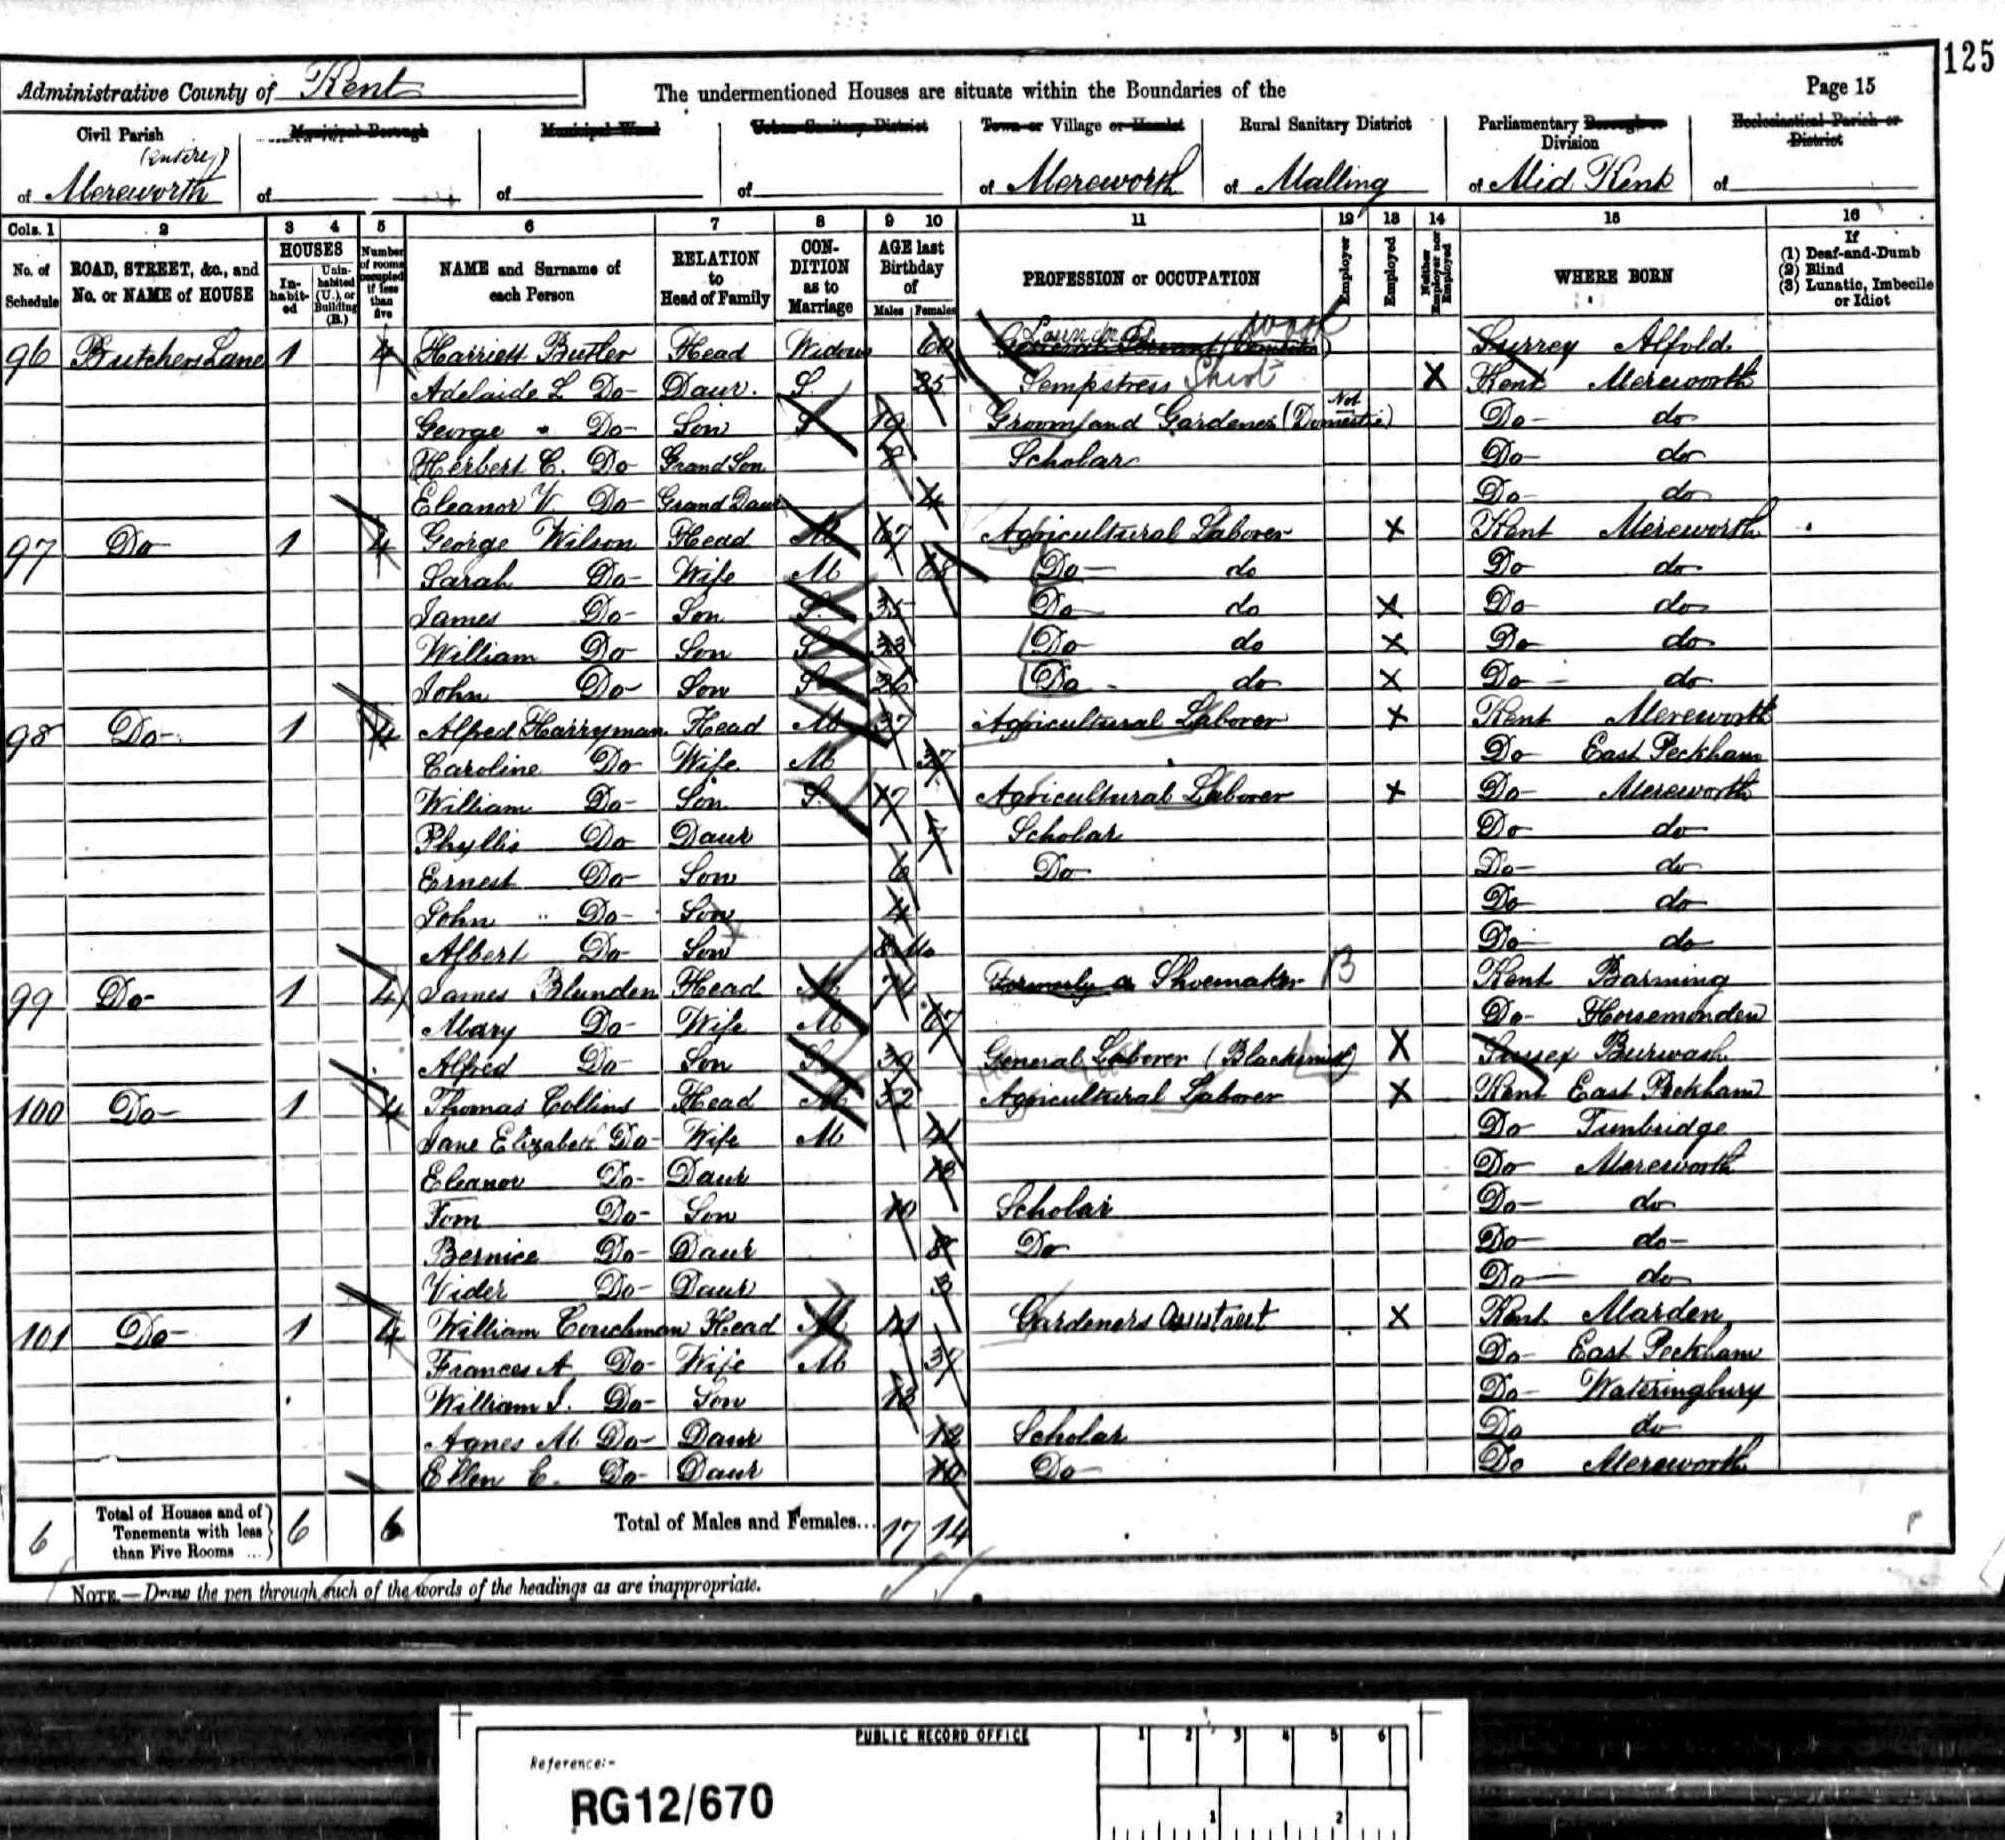 125
Administrative County of Kent The undermentioned Houses are situate within the Boundaries of the Page 15
Civil Parish Municipal Borough Municipal Ward Urban Sanitary District Town or Village or Hamlet Rural Sanitary District Parliamentary Borough or Division Ecclesiastical Parish or District
(entire)
of Mereworth of of of of Mereworth of Malling of Mid Kent of
Cols. 1 2 3 4 5 6 7 8 9 10 11 12 13 14 15 16
No. of Schedule ROAD, STREET, &c., and No. or NAME of HOUSE HOUSES Inhabited Uninhabited (U.), or Building (B.) Number of rooms occupied if less than five NAME and Surname of each Person RELATION to Head of Family CONDITION as to Marriage AGE last Birthday of Males Females PROFESSION or OCCUPATION Employer Employed Neither Employer nor Employed WHERE BORN If (1) Deaf-and-Dumb (2) Blind (3) Lunatic, Imbecile or Idiot
96 Butchers Lane 1 4 Harriett Butler Head Widow 60 Surrey Alfold
Adelaide L Do Daur. S. 25 Sempstress Shirt X Kent Mereworth
George Do Son S 19 Groom and Gardener (Not Domestic) Do do
Herbert C. Do Grand Son 8 Scholar Do do
Eleanor V Do Grand Daur 4 Do do
97 Do 1 4 George Wilson Head M 67 Agricultural Laborer X Kent Mereworth
Sarah Do Wife M 68 Do do Do do
James Do Son S. 35 Do do X Do do
William Do Son S 33 Do do X Do do
John Do Son S 26 Do do X Do do
98 Do 1 4 Alfred Harryman Head M 37 Agricultural Laborer X Kent Mereworth
Caroline Do Wife M 37 Do East Peckham
William Do Son S. 17 Agricultural Laborer X Do Mereworth
Phyllis Do Daur 7 Scholar Do do
Ernest Do Son 6 Do Do do
John Do Son 4 Do do
Albert Do Son 8 Mo Do do
99 Do 1 4 James Blunden Head M 74 Formerly a Shoemaker B Kent Barming
Mary Do Wife M 67 Do Horsemonden
Alfred Do Son S 39 General Laborer (Blacksmith) X Sussex Burwash
100 Do 1 4 Thomas Collins Head M 52 Agricultural Laborer X Kent East Peckham
Jane Elizabeth Do Wife M 41 Do Tunbridge
Eleanor Do Daur 13 Do Mereworth
Tom Do Son 10 Scholar Do do
Bernice Do Daur 8 Do Do do
Vider Do Daur 3 Do do
101 Do 1 4 William Couchman Head M 41 Gardeners Assistant X Kent Marden
Frances A Do Wife M 37 Do East Peckham
William J. Do Son 13 Do Wateringbury
Agnes M Do Daur 12 Scholar Do do
Ellen E. Do Daur 10 Do Do Mereworth
6 Total of Houses and of Tenements with less than Five Rooms ... 6 6 Total of Males and Females... 17 14
NOTE.—Draw the pen through such of the words of the headings as are inappropriate.
PUBLIC RECORD OFFICE 1 2 3 4 5 6
Reference:-
RG12/670
1 2